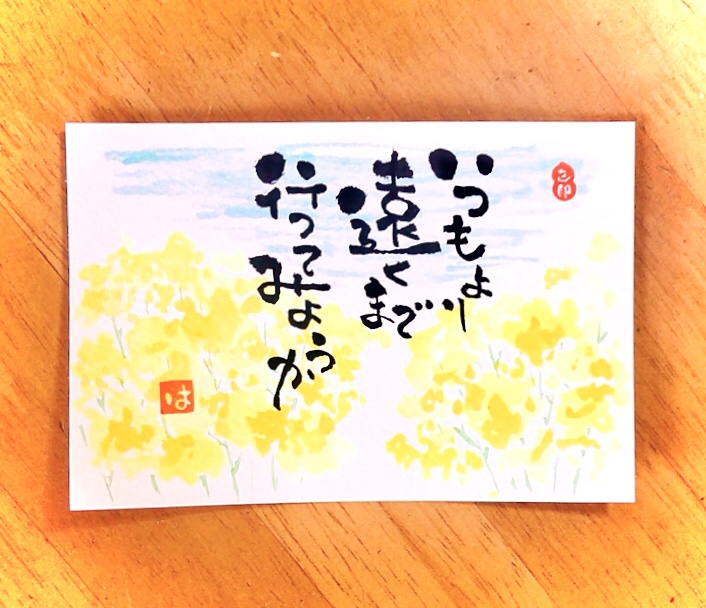 いつもより
遠くまで
行ってみようか
は